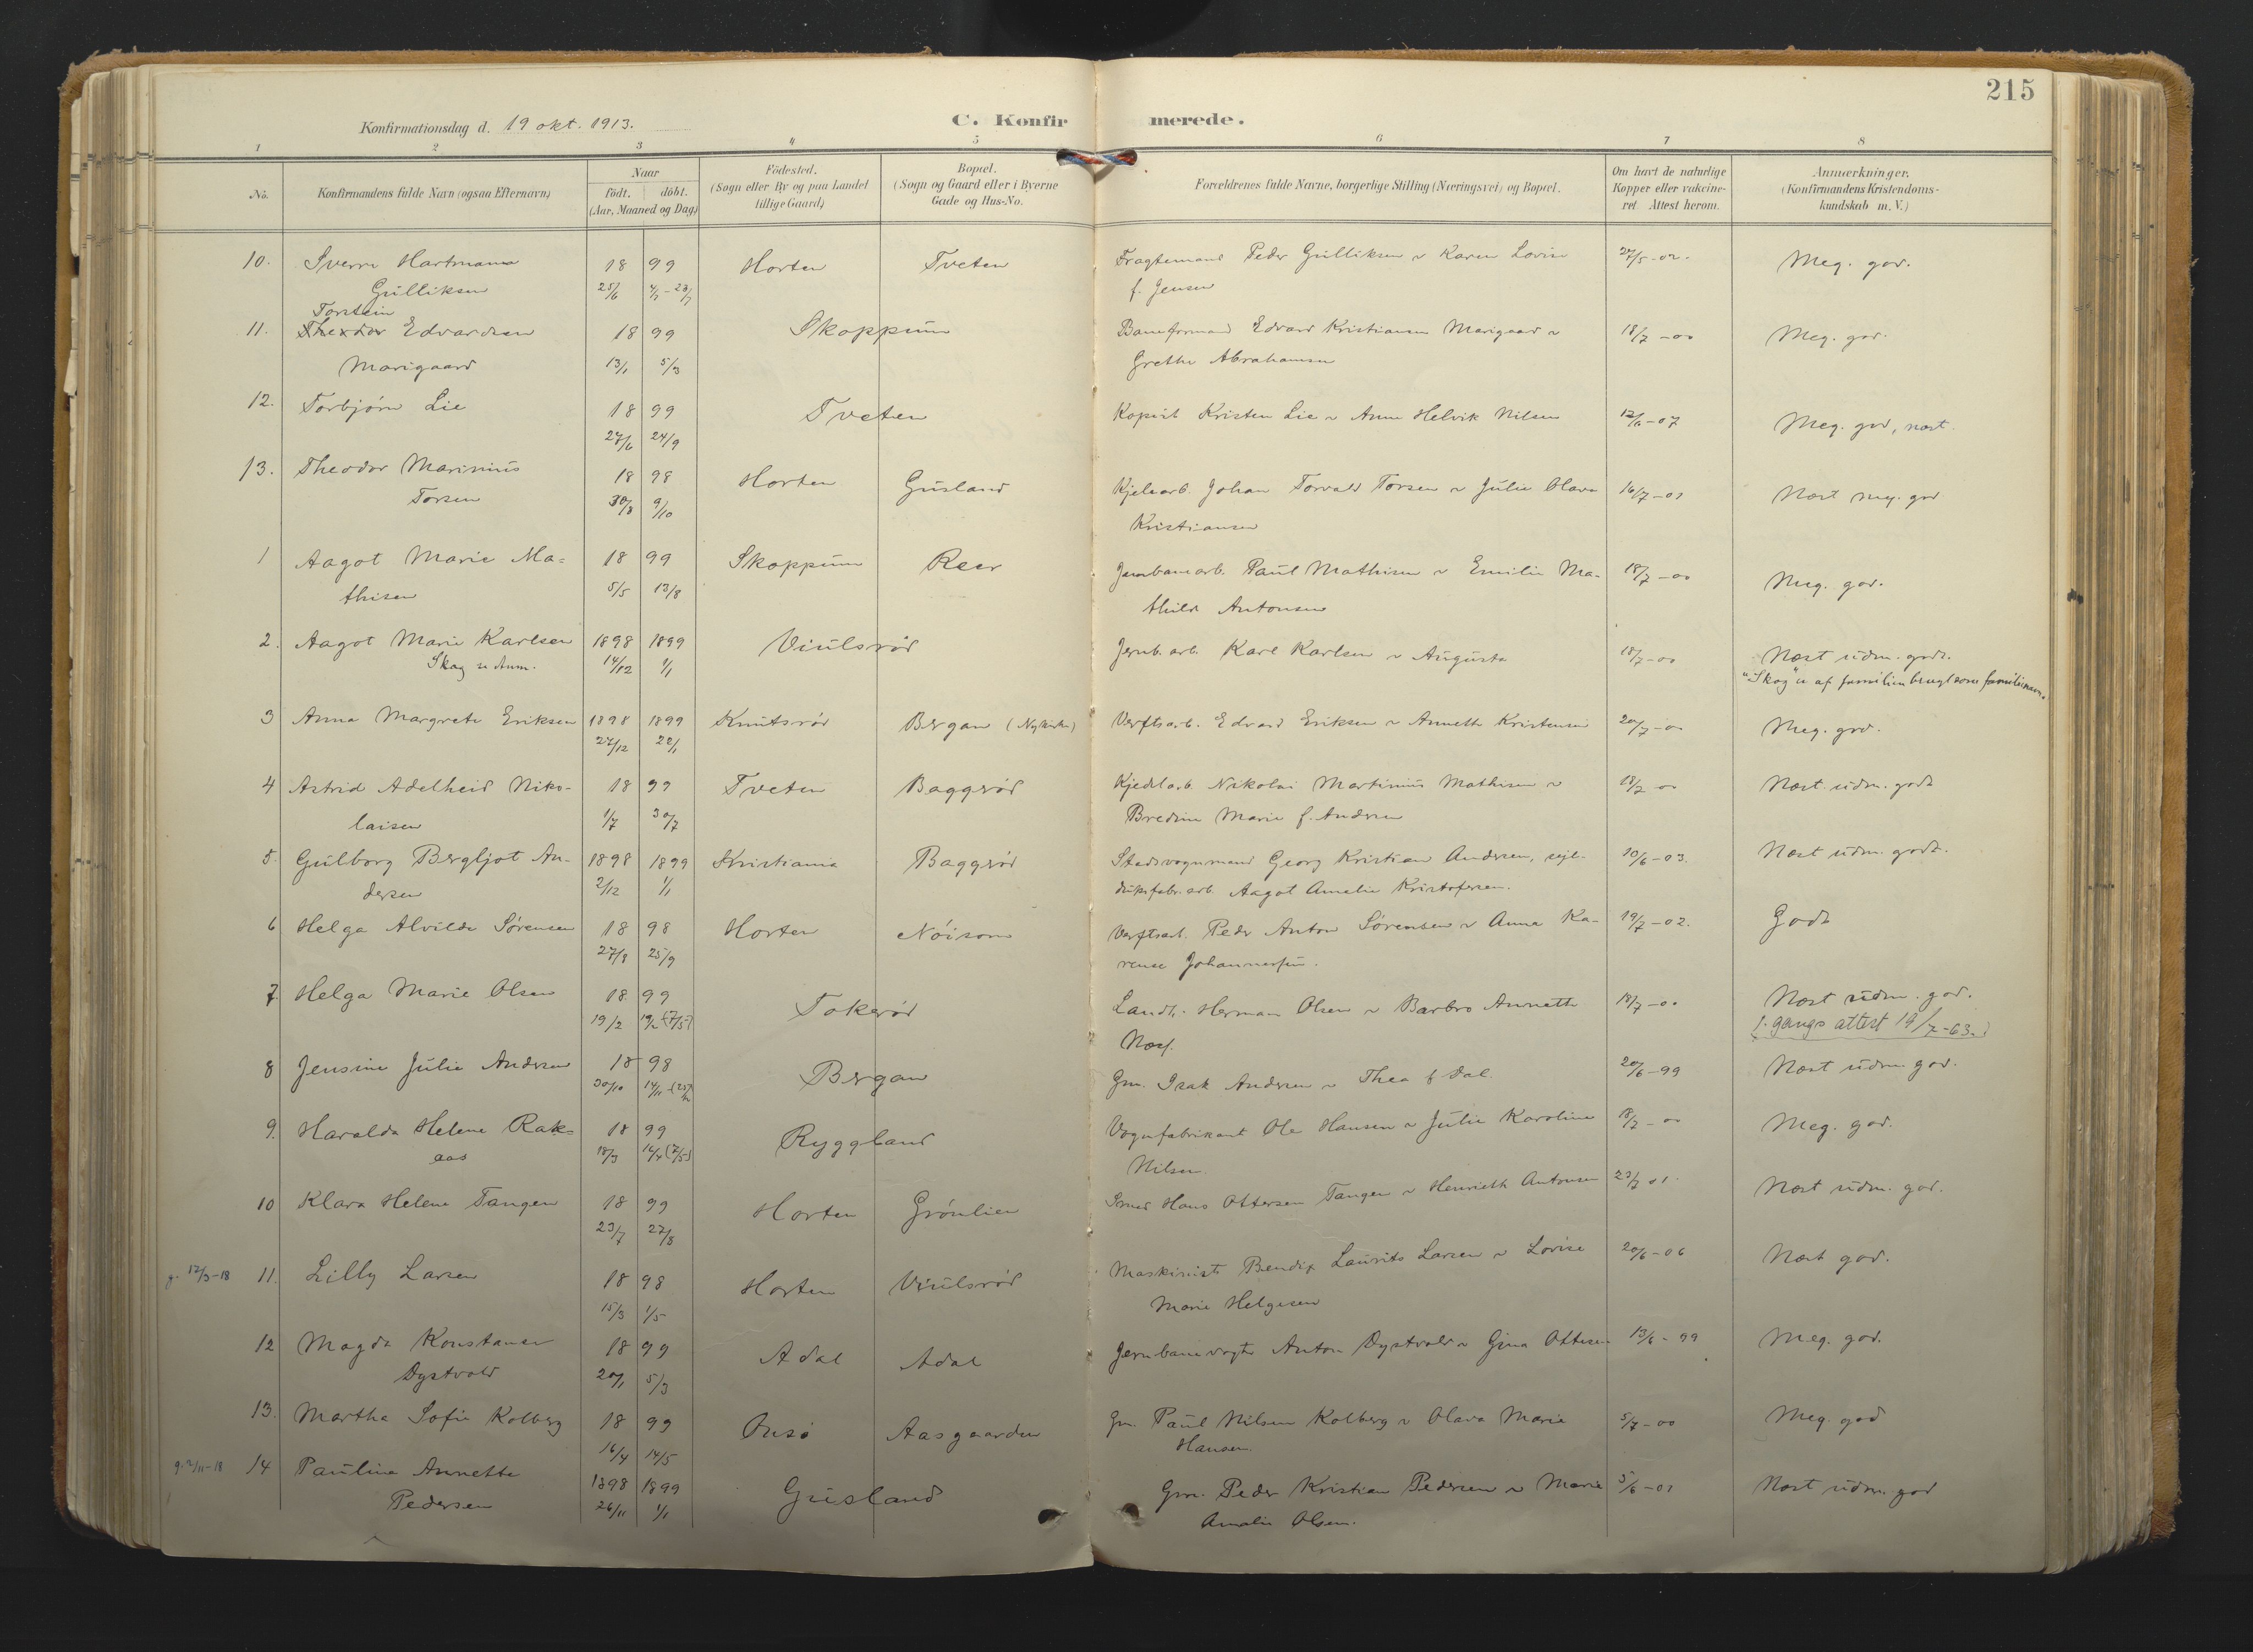 215
Konfirmationsdag d. 19 okt. 1913.
C. Konfirmerede.
1 2 3 4 5 6 7 8
No.
Konfirmandens fulde Navn (ogsaa Efternavn)
Naar
födt. döbt.
(Aar, Maaned og Dag)
Födested.
(Sogn eller By og paa Landet
tillige Gaard)
Bopæl.
(Sogn og Gaard eller i Byerne
Gade og Hus-No.
Forældrenes fulde Navne, borgerlige Stilling (Næringsvei) og Bopæl.
Om havt de naturlige
Kopper eller vakcine-
ret Attest herom.
Anmærkninger.
(Konfirmandens Kristendoms-
kundskab m. V.)
10. Sverre Hartmann 18 99 Horten Tveten Fragtemand Peder Gulliksen & Karen Lovise 27/5-02. Meg. god.
Gulliksen 25/6 f. Jensen
Torstein
11. Theodor Edvardsen 18 99 Skoppum Baneformand Edvard Kristiansen Marigaard & 18/7-00 Meg. god.
Marigaard 13/1 5/3 Grethe Abrahamsen
12. Torbjörn Lie 18 99 Tveten Kopist Kristen Lie & Anne Helvik Nilsen Meg. god, næst.
27/6 24/9
13. Theodor Marinius 18 98 Horten Gusland Kjelearb. Johan Torvald Torsen & Julie Olava 16/7-01 Næst meg. god
Torsen 30/8 9/10 Kristiansen
1 Aagot Marie Ma- 18 99 Skoppum Reer Jernbanearb. Paul Mathisen & Emilie Ma- 18/7-00 Meg. god.
thisen 5/5 13/8 thilde Antonsen
2. Aagot Marie Karlsen 1898 1899 Viulsröd Jernb. arb. Karl Karlsen & Augusta 18/7-00 Næst udm. godt.
Skog se Anm. 14/12 1/1 "Skog" er af familien brugt som familienavn.
3 Anna Margrete Eriksen 1898 1899 Knutsröd Bergan (Nykirke) Verftsarb. Edvard Eriksen & Annette Kristensen 20/7-00 Meg. god.
27/12 22/1
4 Astrid Adelheid Niko- 18 99 Tveten Baggeröd Kjedelarb. Nikolai Martinius Mathisen & 18/7 00 Næst udm. godt
laisen 1/7 30/7 Bredine Marie f. Andersen
5. Gulborg Bergljot An- 1898 1899 Kristiania Baggeröd Stadsvognmand Georg Kristian Andersen, sejl- 10/6-03. Næst udm. godt.
dersen 2/12 1/1 duksfabr. arb. Aagot Amalie Kristofersen.
6 Helga Alvilde Sørensen 18 98 Horten Nöisom Verftsarb. Peder Anton Sørensen & Anna Ka- 19/7-02. Godt
27/8 25/9 rense Johannessen.
7 Helga Marie Olsen 18 99 Tokeröd Landh. Herman Olsen & Barbro Annette 18/7-00 Næst udm. god.
19/2 19/2 (7/5) Næs. 1. gangs attest 19/7-63.
8 Jensine Julie Andersen 18 98 Bergan Gm. Isak Andersen & Thea f. Dal. 20/6-99 Næst udm. god.
30/10 14/11
9. Haralda Helene Rak- 18 99 Ryggland Vognfabrikant Ole Hansen & Julie Karoline 18/7-00 Meg. god.
aas 18/3 Nilsen.
10 Klara Helene Tangen 18 99 Horten Grönlien Smed Hans Ottersen Tangen & Henriette Antonsen 23/7 01. Næst udm. god.
23/7 27/8
g. 12/3-18 11. Lilly Larsen 18 98 Horten Viulsröd Maskinist Bendix Laurits Larsen & Lovise 20/6-06 Næst god.
15/3 1/5 Marie Helgesen
12 Magda Konstanse 18 99 Adal Adal Jernbanevogter Anton Dystvold & Gina Ottesen 13/6-99 Meg. god.
Dystvold 20/1 5/3
13. Martha Sofie Kolberg 18 99 Onsö Aasgaarden Gm. Paul Nilsen Kolberg & Olava Marie 5/7-00 Meg. god
16/4 14/5 Hansen.
g. 2/11-18 14 Pauline Annette 1898 1899 Gusland Gm. Peder Kristian Pedersen & Marie 5/6-01 Næst udm. god
Pedersen 26/11 1/1 Amalie Olsen.